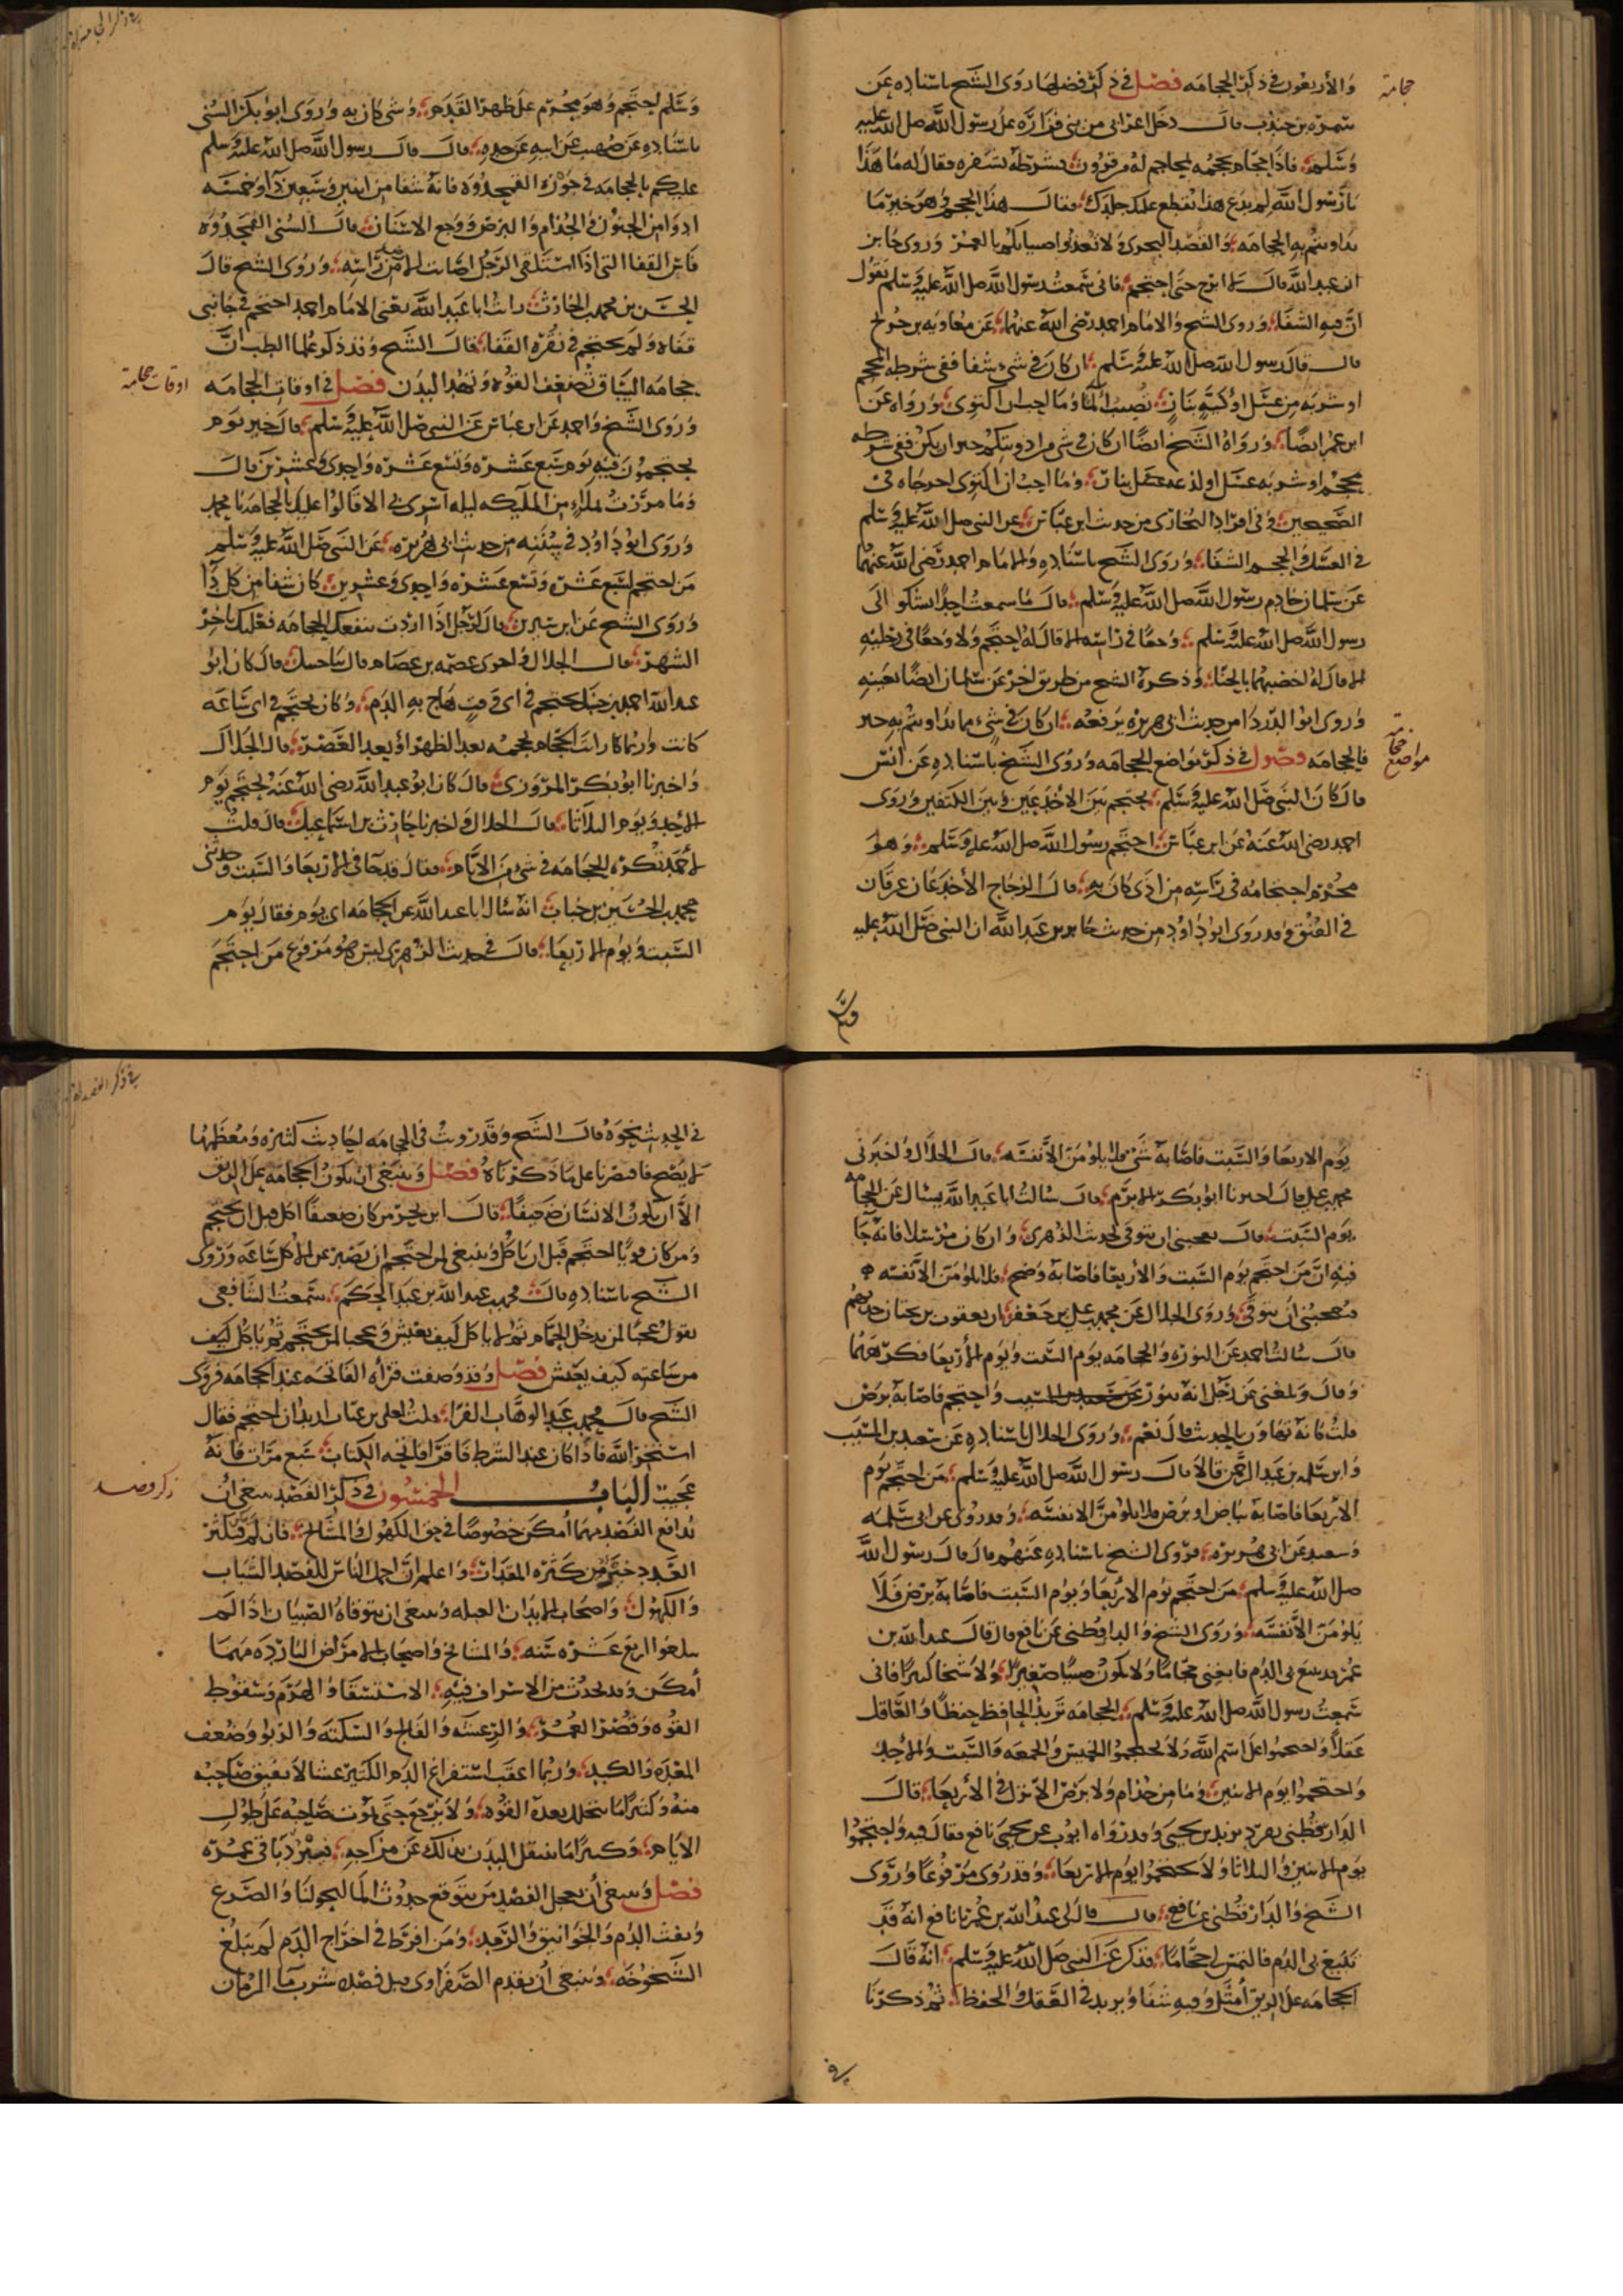 والأربعون في ذكر الحجامه فصل في ذكر فضلها روى الشيخ باسناده عن
سمرة بن جندب قال دخل اعرابي من بني فزارة على رسول الله صلى الله عليه
وسلم فاذا حجام يحجمه بمحاجم له من قرون يشرطه بشفره فقال له ما هذا
يا رسول الله لم تدع هذا يقطع عليك جلدك فقال هذا الحجم وهو خير ما
تداويتم به الحجامه والقسط البحري ولا تعذبوا صبيانكم بالغمز وروى جابر
ابن عبد الله قال لا ابرح حتى احتجم فاني سمعت رسول الله صلى الله عليه وسلم يقول
ان فيه الشفا وروى الشيخ والامام احمد رضي الله عنهما عن معاوية بن حديج
قال قال رسول الله صلى الله عليه وسلم ان كان في شيء شفا ففي شرطه محجم
او شربه من عسل او كية بنار تصيب ألما وما احب ان اكتوي ورواه عن
ابن عمر ايضا ورواه الشيخ ايضا ان كان في شي من ادويتكم خير ان يكن ففي شرطه
محجم او شربه عسل او لذعه بنار وما احب ان اكتوي اخرجاه في
الصحيحين وفي افراد البخاري من حديث ابن عباس عن النبي صلى الله عليه وسلم
في العسل والحجم الشفا وروى الشيخ باسناده والامام احمد رضي الله عنهما
عن سلمان خادم رسول الله صلى الله عليه وسلم قال ما سمعت احدا يشكو الى
رسول الله صلى الله عليه وسلم وجعا في راسه الا قال له احتجم ولا وجعا في رجليه
الا قال له اخضبهما بالحنا وذكره الشيخ من طريق اخر عن سلمان ايضا بعينه
وروى ابو الدردا من حديث ابي هريرة يرفعه ان كان في شيء مما تداويتم به خير
فالحجامه فصول في ذكر مواضع الحجامه وروى الشيخ باسناده عن انس
قال كان النبي صلى الله عليه وسلم يحتجم بين الاخدعين وبين الكتفين وروى
احمد رضي الله عنه عن ابن عباس احتجم رسول الله صلى الله عليه وسلم وهو
محرم احتجامه في راسه من اذى كان به قال الزجاج الأخدعان عرقان
في العنق وقد روى ابو داود من حديث جابر بن عبد الله ان النبي صلى الله عليه
وسلم
حجامة
مواضع حجامة
وسلم احتجم وهو محرم على ظهر القدم وثي كان به وروى ابو بكر السني
باسناده عن صهيب عن ابيه عن جده قال قال رسول الله صلى الله عليه وسلم
عليكم بالحجامه في جوزة القمحدوة فانه شفا من اثنين وسبعين دا وخمسه
ادوا من الجنون والجذام والبرص ووجع الاسنان قال السني القمحدوة
فاس القفا التي اذا استلقى الرجل اصابت الارض من راسه وروى الشيخ قال
الحسن بن محمد بن الحارث رايت ابا عبد الله يعني الامام احمد احتجم في جانبي
قفاه ولم يحتجم في نقرة القفا قال الشيخ وقد ذكر علما الطب ان
حجامه الساق تضعف القوه وتنهد البدن فصل في اوقات الحجامه
وروى الشيخ واحمد عن ابن عباس عن النبي صلى الله عليه وسلم قال خير يوم
يحتجمون فيه يوم سبع عشره وتسع عشره واحدى وعشرين قال
وما مررت بملا من الملايكه ليله اسري بي الا قالوا عليك بالحجامه يا محمد
وروى ابو داود في سننه من حديث ابي هريرة عن النبي صلى الله عليه وسلم
من احتجم لسبع عشرة وتسع عشره واحدى وعشرين كان شفا من كل دا
وروى الشيخ عن ابن سيرين قال لرجل اذا اردت منفعه الحجامه فعليك باخر
الشهر قال الخلال واخبرني عصمه بن عصام قال حنبل قال كان ابو
عبد الله احمد بن حنبل يحتجم في اي وقت هاج به الدم وكان يحتجم في اي ساعه
كانت وربما كان رايت الحجام يحجمه بعد الظهر او بعد العصر قال الخلال
واخبرنا ابو بكر المروزي قال كان ابو عبد الله رضي الله عنه يحتجم يوم
الأحد ويوم الثلاثا قال الخلال واخبرنا حارث بن اسماعيل قال قلت
لأحمد تكره الحجامه في شي من الايام فقال قد جا في الاربعا والسبت وحدثني
محمد بن الحسين بن حسان انه سال ابا عبد الله عن الحجامه اي يوم فقال يوم
السبت ويوم الاربعا قال في حديث الزهري ليس هو مرفوع من احتجم
اوقات حجامة
في ذكر الحجامة
يوم الاربعا والسبت فاصابه شي فلا يلومن الا نفسه قال الخلال واخبرني
محمد بن علي قال اخبرنا ابو بكر الاثرم قال سالت ابا عبد الله يسال عن الحجامه
يوم السبت قال يعجبني ان يتوقى لحديث الزهري وان كان مرسلا فانه جا
فيه ان من احتجم يوم السبت والأربعا فاصابه وضح فلا يلومن الا نفسه
فيعجبني ان يتوقى وروى الخلال عن محمد بن علي بن جعفر ان يعقوب بن بختان حدثهم
قال سالت احمد عن النورة والحجامه يوم السبت ويوم الأربعا فكرههما
وقال وبلغني عن رجل انه تنور واحتجم فاصابه برص
قلت كانه تهاون بالحديث قال نعم وروى الخلال باسناده عن سعيد بن المسيب
وابي سلمه بن عبد الرحمن قالا قال رسول الله صلى الله عليه وسلم من احتجم يوم
الاربعا فاصابه بياض او برص فلا يلومن الا نفسه وقد روى عن ابي سلمه
وسعيد عن ابي هريرة فروى الشيخ باسناده عنهم قال قال رسول الله
صلى الله عليه وسلم من احتجم يوم الاربعا ويوم السبت فاصابه برص فلا
يلومن الا نفسه وروى الشيخ والدارقطني عن نافع قال قال عبد الله بن
عمر قد تبيغ بي الدم فابغني حجاما ولا يكون صبيا صغيرا ولا شيخا كبيرا فاني
سمعت رسول الله صلى الله عليه وسلم الحجامه تزيد الحافظ حفظا والعاقل
عقلا واحتجموا على اسم الله ولا تحتجموا الخميس والجمعه والسبت والأحد
واحتجموا يوم الاثنين وما من جذام ولا برص الا نزل في الأربعا قال
الدارقطني تفرد به زيد بن يحيى وقد رواه ايوب عن يحيى نافع فقال فيه واحتجموا
يوم الاثنين والثلاثا ولا تحتجموا يوم الاربعا وقد روى مرفوعا وروى
الشيخ والدارقطني عن نافع قال قال لي عبد الله بن عمر يا نافع انه قد
تبيغ بي الدم فالتمس لي حجاما فذكر عن النبي صلى الله عليه وسلم انه قال
الحجامه على الريق أمثل وفيه شفا ويزيد في العقل والحفظ ثم ذكرنا
في
في الحديث نحوه قال الشيخ وقد رويت في الحجامه احاديث كثيره ومعظمها
لا يصح فاقتصرنا على ما ذكرناه فصل وينبغي ان تكون الحجامه على الريق
الا ان يكون الانسان ضعيفا قال ابن بحر من كان ضعيفا اكل قبل ان يحتجم
ومن كان قويا احتجم قبل ان ياكل وينبغي لمن احتجم ان يصبر عن الاكل ساعه وروى
الشيخ باسناده قال محمد بن عبد الله بن عبد الحكم سمعت الشافعي
يقول عجبا لمن يدخل الحمام ثم لا ياكل كيف يعيش وعجبا لمن يحتجم ثم ياكل كيف
من ساعته كيف يعيش فصل وقد وصفت قراه الفاتحه عند الحجامه فروى
الشيخ قال محمد بن عبد الوهاب الفرا قلت لعلي بن عثام اريد ان احتجم فقال
استخر الله فاذا كان عند الشرط فاقرا فاتحه الكتاب سبع مرات فانه
عجيب الباب الخمسون في ذكر الفصد ينبغي ان
يدافع الفصد مهما أمكن خصوصا في حق الكهول والمشايخ فان
الفصد خير من كثره واعلم ان احمل الناس للفصد الشباب
والكهول واصحاب الابدان العبله وينبغي ان يتوقاه الصبيان اذا لم
يبلغوا اربع عشره سنه والمشايخ واصحاب الامراض البارده مهما
أمكن وقد يحدث من الاسراف فيه الاستسقا والهرم وسقوط
القوه وقصر العمر والرعشه والفالج والسكته والربو وضعف
المعده والكبد وربما اعقب استفراغ الدم الكثير غشا لا يفيق صاحبه
منه وكثيرا ما تتحلل بعده القوه ولا يرجع حتى يموت صاحبه على طول
الايام وكثيرا ما ينتقل البدن بذلك عن مزاجه فيصير رديا في عمره
فصل وينبغي أن يعجل الفصد من يتوقع حدوث الماليخوليا والصرع
ونفث الدم والخوانيق والرمد ومن افرط في اخراج الدم لم يبلغ
الشيخوخه وينبغي أن يقدم الصفراوي قبل فصده شرب ما الرمان
ذكر فصد
في ذكر الفصد